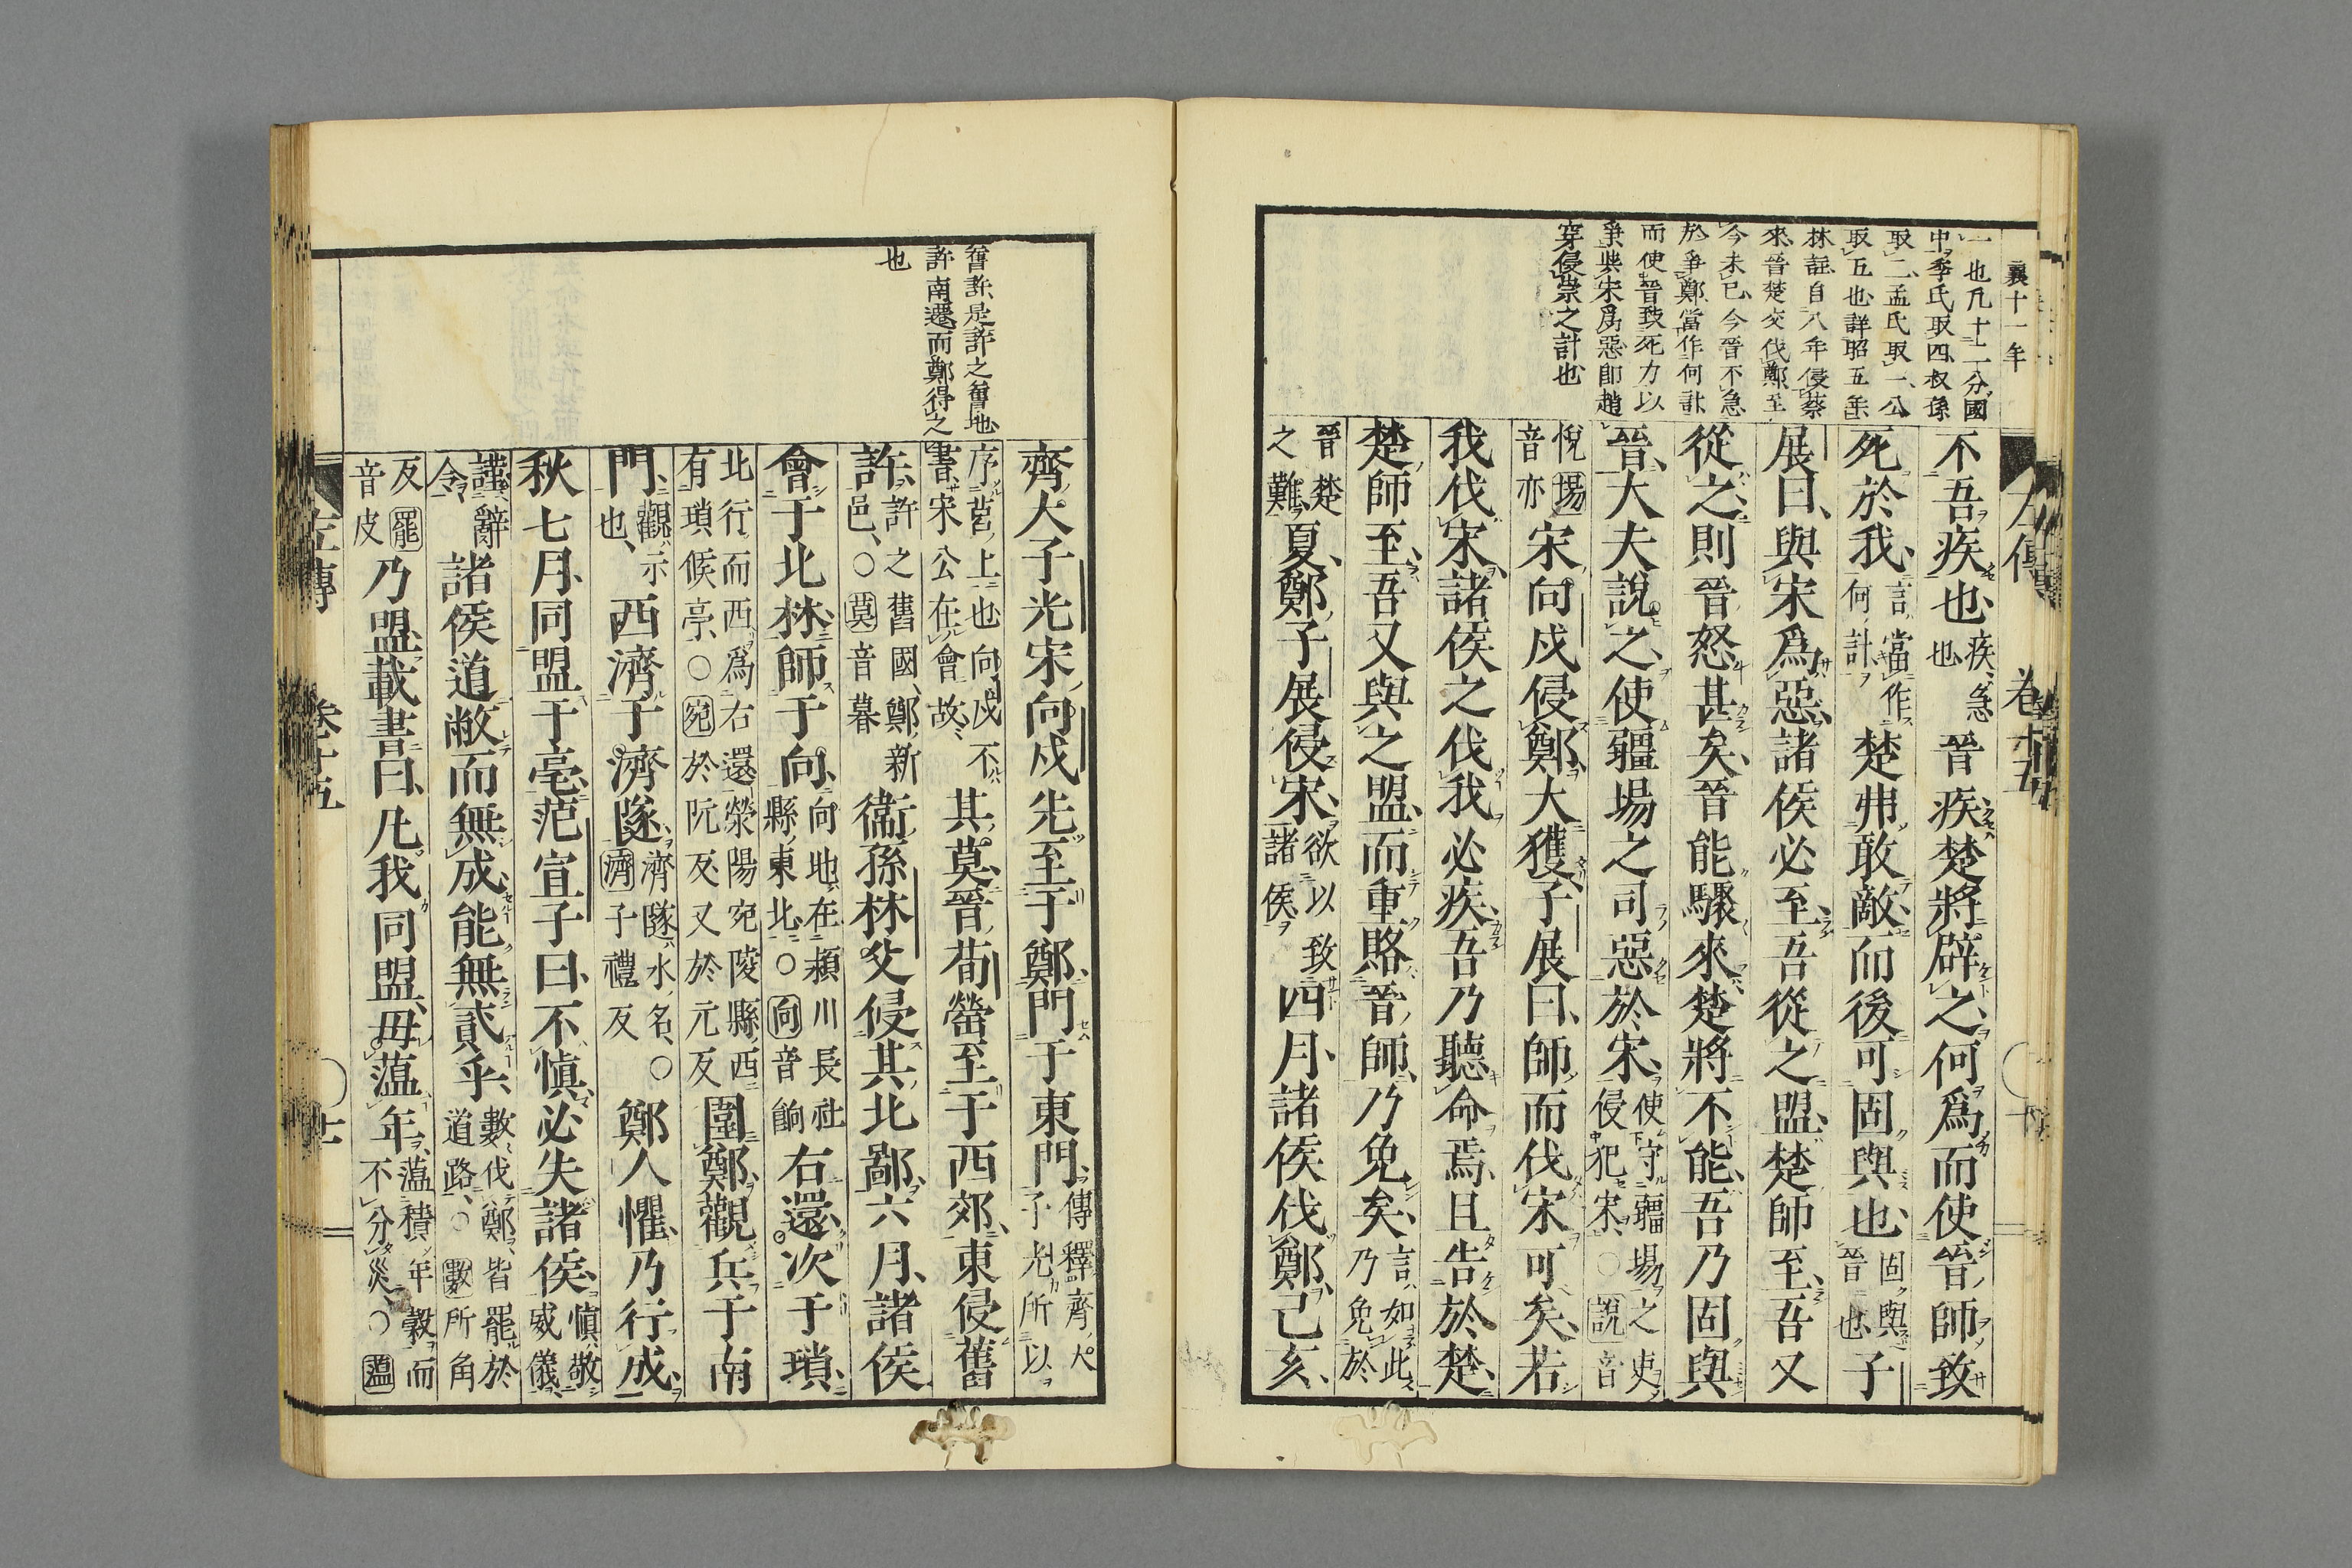 襄十一年
一也凡十二分國
中季氏取四叔孫
取二孟氏取一公
取五也詳昭五年
林註自八年侵蔡
來晉楚交伐鄭至
今未已今晉不急
於爭鄭當作何計
而使晉致死力以
爭與宋爲惡即趙
穿侵崇之計也
左傳 卷十五
不吾疾也疾急也晉疾楚將辟之何爲而使晉師致
死於我言當作何計楚弗敢敵而後可固與也固與晉也子
展曰與宋爲惡諸侯必至吾從之盟楚師至吾又
從之則晉怒甚矣晉能驟來楚將不能吾乃固與
晉大夫說之使疆場之司惡於宋使守疆場之吏侵犯宋○說音
悅場音亦宋向戌侵鄭大獲子展曰師而伐宋可矣若
我伐宋諸侯之伐我必疾吾乃聽命焉且告於楚
楚師至吾又與之盟而重賂晉師乃免矣言如此乃免於
晉楚之難夏鄭子展侵宋欲以致諸侯四月諸侯伐鄭己亥
嘗許是許之舊地
許南遷而鄭得之
也
齊大子光宋向戌先至于鄭門于東門傳釋齊大子光所以
序莒上也向戌不書宋公在會故其莫晉荀罃至于西郊東侵舊
許許之舊國鄭新邑○莫音暮衞孫林父侵其北鄙六月諸侯
會于北林師于向向地在潁川長社縣東北○向音餉右還次于瑣
北行而西爲右還滎陽宛陵縣西有瑣候亭○宛於阮反又於元反圍鄭觀兵于南
門觀示也西濟于濟隧濟隧水名○濟子禮反鄭人懼乃行成
秋七月同盟于亳范宣子曰不愼必失諸侯愼敬威儀
謹辭令諸侯道敝而無成能無貳乎數伐鄭皆罷於道路○數所角
反罷音皮乃盟載書曰凡我同盟毋薀年薀積年穀而不分災○薀
左傳 卷十五 十七